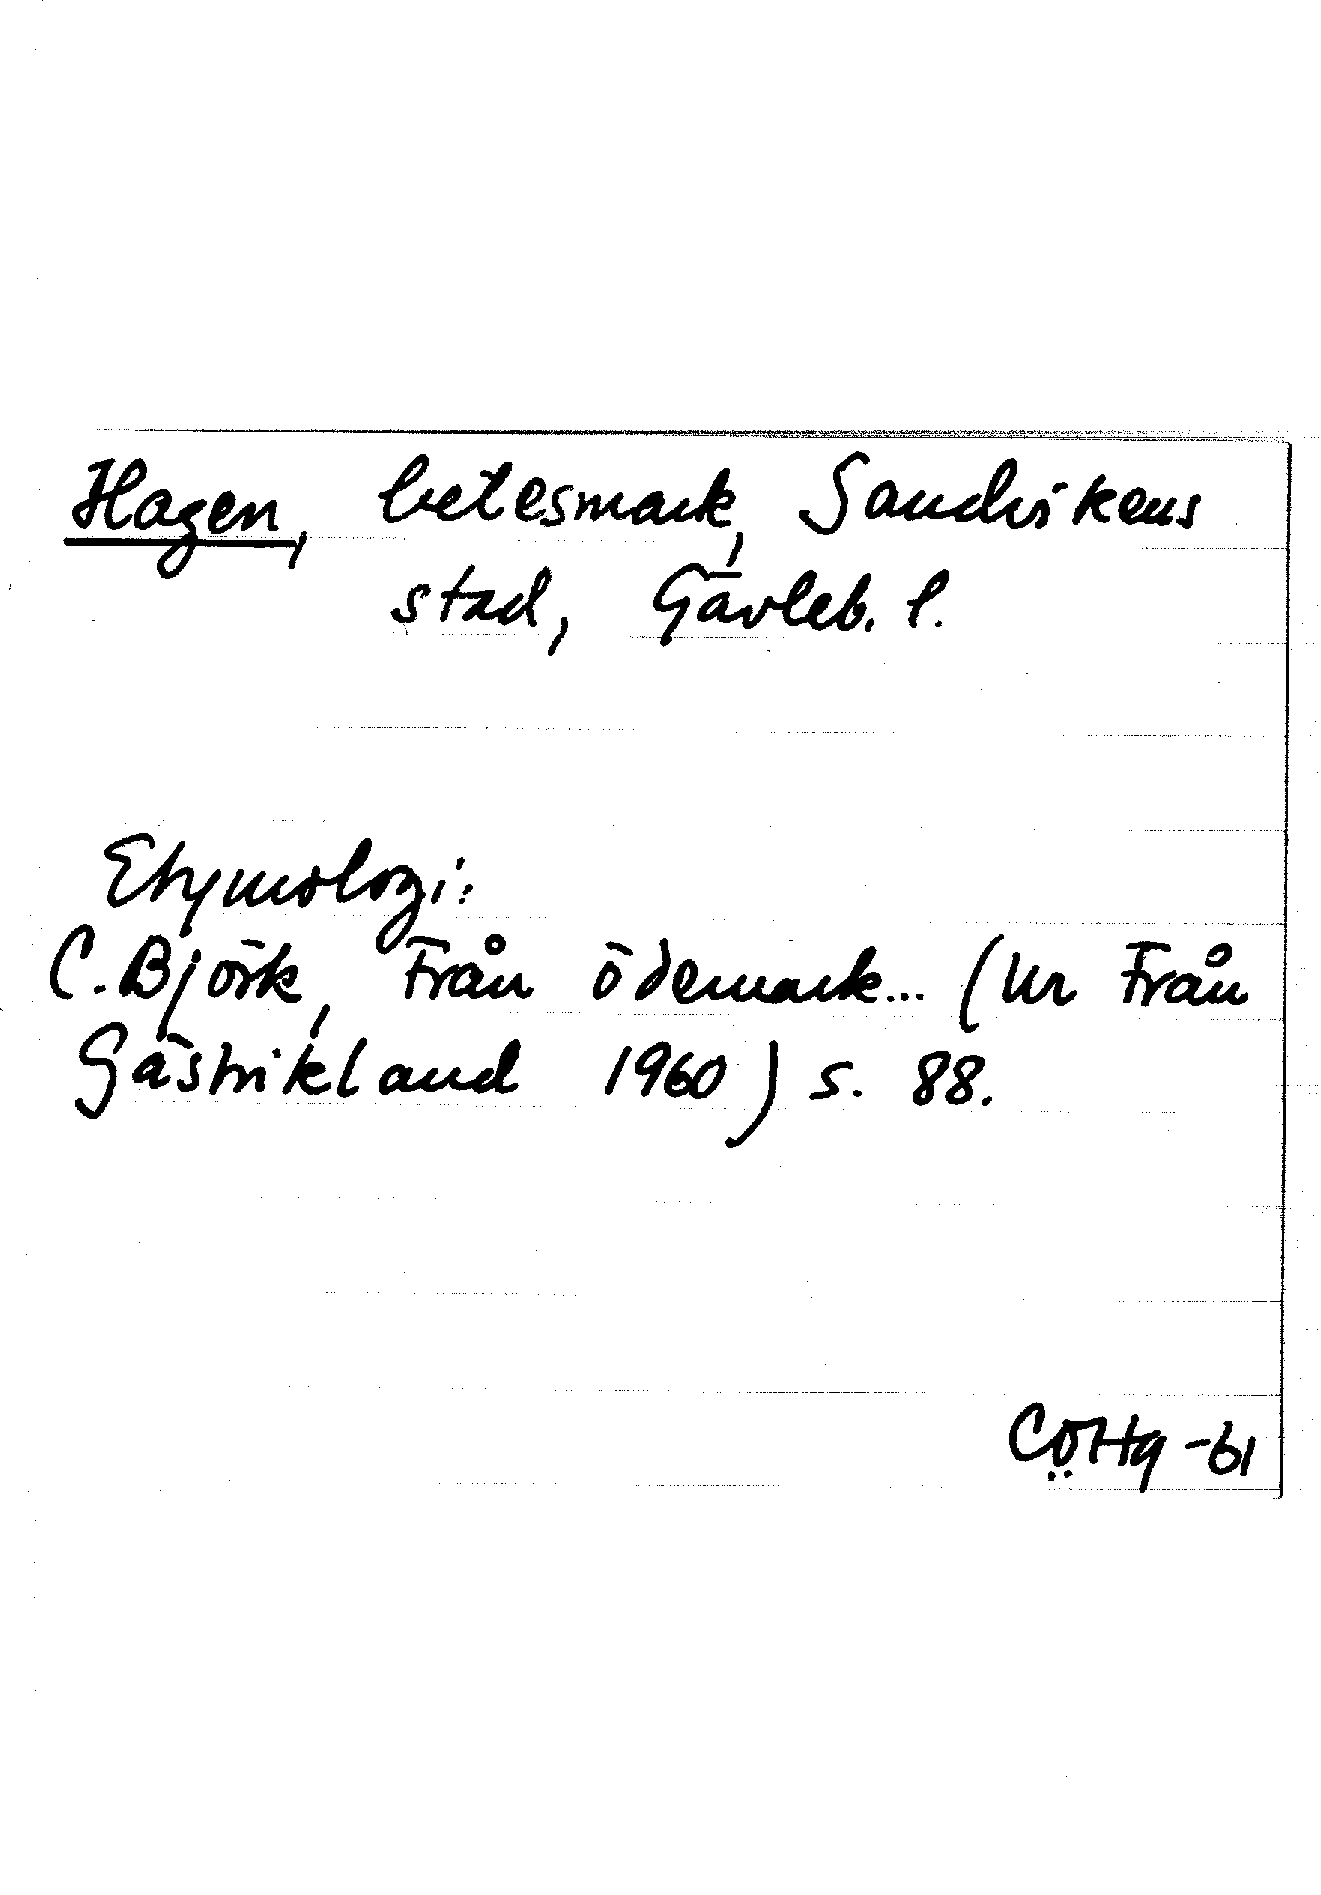 Hagen, betesmark, Sandvikens
stad, Gävleb. l.
Etymologi:
C. Björk, Från ödemark... (Ur Från
Gästrikland 1960) s. 88.
CÖHg -61